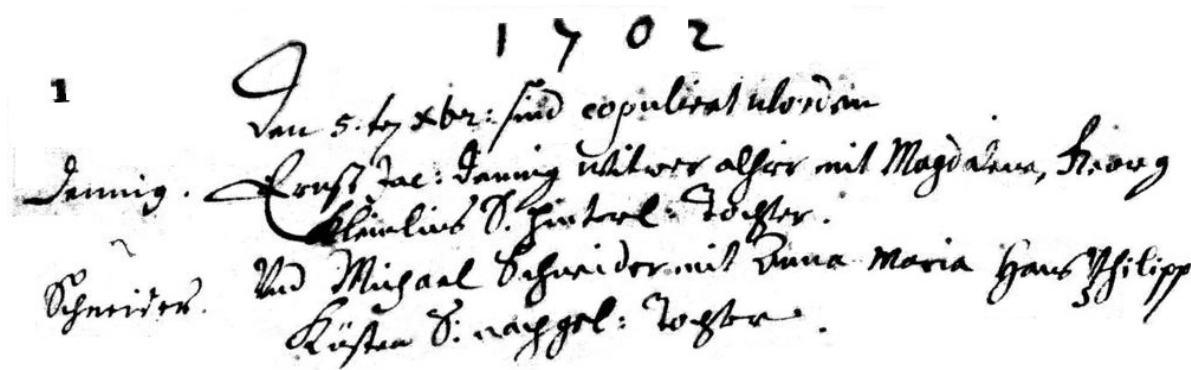 1702
1
Den 5. xbr: sind copuliert worden
Dennig. Ernst Jac: Dennig witwer alhier mit Magdalena, Georg
S. hinterl: Tochter.
Schneider. Und Michael Schneider mit Anna Maria Hans Philipp
Küsten S: nachgel: Tochter.